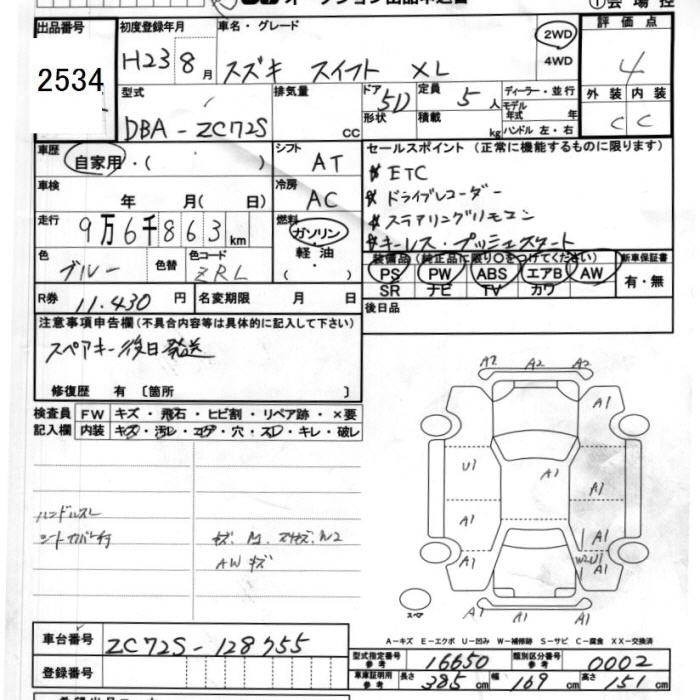 出品番号
2534
初度登録年月
H23 8月
車名・グレード
スズキ スイフト XL
2WD
4WD
評価点
4
外装 内装
C C
型式
DBA-ZC72S
排気量
cc
ドア 5D
形状
定員 5人
積載 kg
ディーラー・並行
モデル年式 年
ハンドル 左・右
車歴
自家用・( )
シフト
AT
セールスポイント (正常に機能するものに限ります)
ETC
ドライブレコーダー
ステアリングリモコン
キーレス・プッシュスタート
車検
年 月( 日)
冷房
AC
走行
9万6千863km
燃料
ガソリン
軽油
色
ブルー
色替
色コード
ZRL
装備品 (純正品に限り○をつけてください)
PS PW ABS エアB AW
SR ナビ TV カワ
新車保証書
有・無
R券 11.430円
名変期限 月 日
後日品
注意事項申告欄 (不具合内容等は具体的に記入して下さい)
スペアキー後日発送
修復歴 有 〔箇所 〕
検査員記入欄
FW キズ・飛石・ヒビ割・リペア跡・×要
内装 キズ・汚レ・コゲ・穴・スレ・キレ・破レ
ハンドルスレ
AWキズ
A2 A2 A2
A1 A1
U1 A1 A1
A1 A1
A1 W2U1 A1
A1 A1 A1
スペア
A-キズ E-エクボ U-凹み W-補修跡 S-サビ C-腐食 XX-交換済
車台番号
ZC72S-128755
登録番号
型式指定番号 参考 16650
類別区分番号 参考 0002
車庫証明用 参考 長さ 385cm 幅 169cm 高さ 151cm